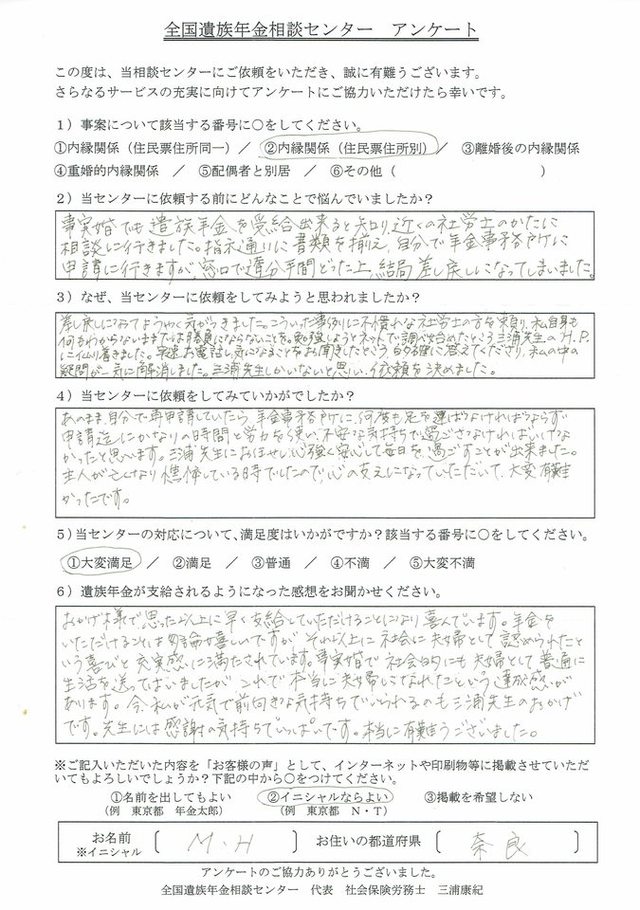 全国遺族年金相談センター　アンケート
この度は、当相談センターにご依頼をいただき、誠に有難うございます。
さらなるサービスの充実に向けてアンケートにご協力いただけたら幸いです。
1）事案について該当する番号に○をしてください。
①内縁関係（住民票住所同一）／　②内縁関係（住民票住所別）／　③離婚後の内縁関係
④重婚的内縁関係　／　⑤配偶者と別居　／　⑥その他（　　　　　　　　）
2）当センターに依頼する前にどんなことで悩んでいましたか？
事実婚でも遺族年金を受給出来ると知り、近くの社労士のかたに
相談に行きました。指示通りに書類を揃え、自分で年金事務所に
申請に行きますが、窓口で随分手間どった上、結局差し戻しになってしまいました。
3）なぜ、当センターに依頼をしてみようと思われましたか？
差し戻しになってようやく気がつきました。こういった事例に不慣れな社労士の方を頼り、私自身も
何もわからないままでは勝負にならないことを。勉強しようとネットで調べ始めたという三浦先生のH.P.
に辿り着きました。早速お電話し気になることをお聞きしたところ的確に答えてくださり、私の中の
疑問が一気に解消しました。三浦先生しかいないと思い、依頼を決めました。
4）当センターに依頼をしてみていかがでしたか？
あのまま自分で再申請していたら、年金事務所に何度も足を運ばなければならず
申請迄にかなりの時間と労力を使い、不安な気持ちで過ごさなければいけな
かったと思います。三浦先生にお任せし心強く安心して毎日を過ごすことが出来ました。
主人が亡くなり憔悴している時でしたので、心の支えになっていただいて、大変有難
かったです。
5）当センターの対応について、満足度はいかがですか？該当する番号に○をしてください。
①大変満足　／　②満足　／　③普通　／　④不満　／　⑤大変不満
6）遺族年金が支給されるようになった感想をお聞かせください。
おかげ様で思った以上に早く支給していただけることになり喜んでいます。年金を
いただけることは勿論嬉しいですが、それ以上に社会に夫婦として認められたと
いう喜びと充実感に満たされています。事実婚で社会的にも夫婦として普通に
生活を送ってはいましたが、これで本当に夫婦になれたという達成感が
あります。今、私が元気で前向きな気持ちでいられるのも三浦先生のおかげ
です。先生には感謝の気持ちでいっぱいです。本当に有難うございました。
※ご記入いただいた内容を「お客様の声」として、インターネットや印刷物等に掲載させていただ
いてもよろしいでしょうか？下記の中から○をつけてください。
①名前を出してもよい　②イニシャルならよい　③掲載を希望しない
（例　東京都　年金太郎）　（例　東京都　N・T）
お名前　M・H　お住いの都道府県　奈良
※イニシャル
アンケートのご協力ありがとうございました。
全国遺族年金相談センター　代表　社会保険労務士　三浦康紀